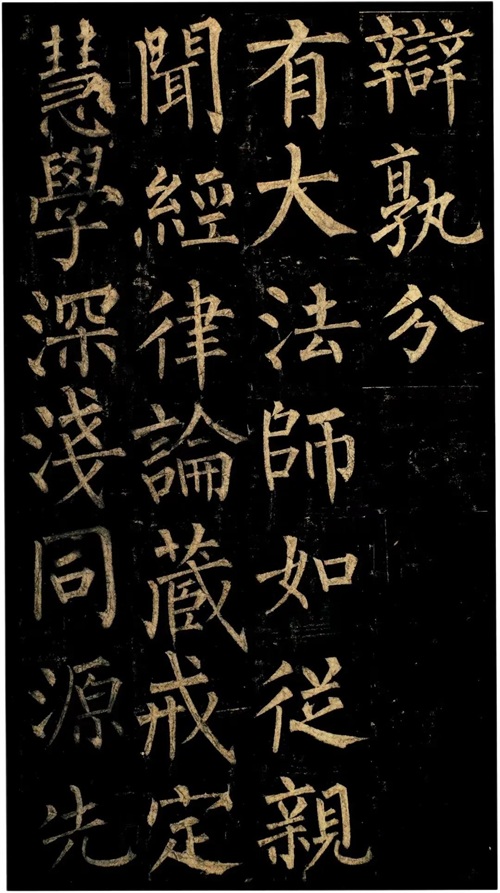 辯孰分
有大法師如從親
聞經律論藏戒定
慧學深淺同源先